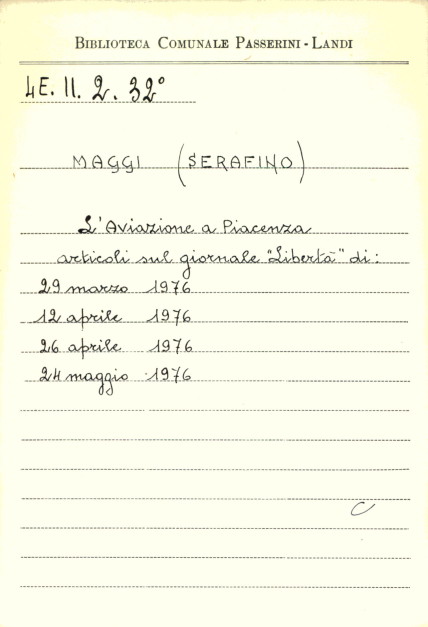 BIBLIOTECA COMUNALE PASSERINI - LANDI
4E. II. 2. 32°
MAGGI (SERAFINO)
L'Aviazione a Piacenza
articoli sul giornale "Libertà" di:
29 marzo 1976
12 aprile 1976
26 aprile 1976
24 maggio 1976
C